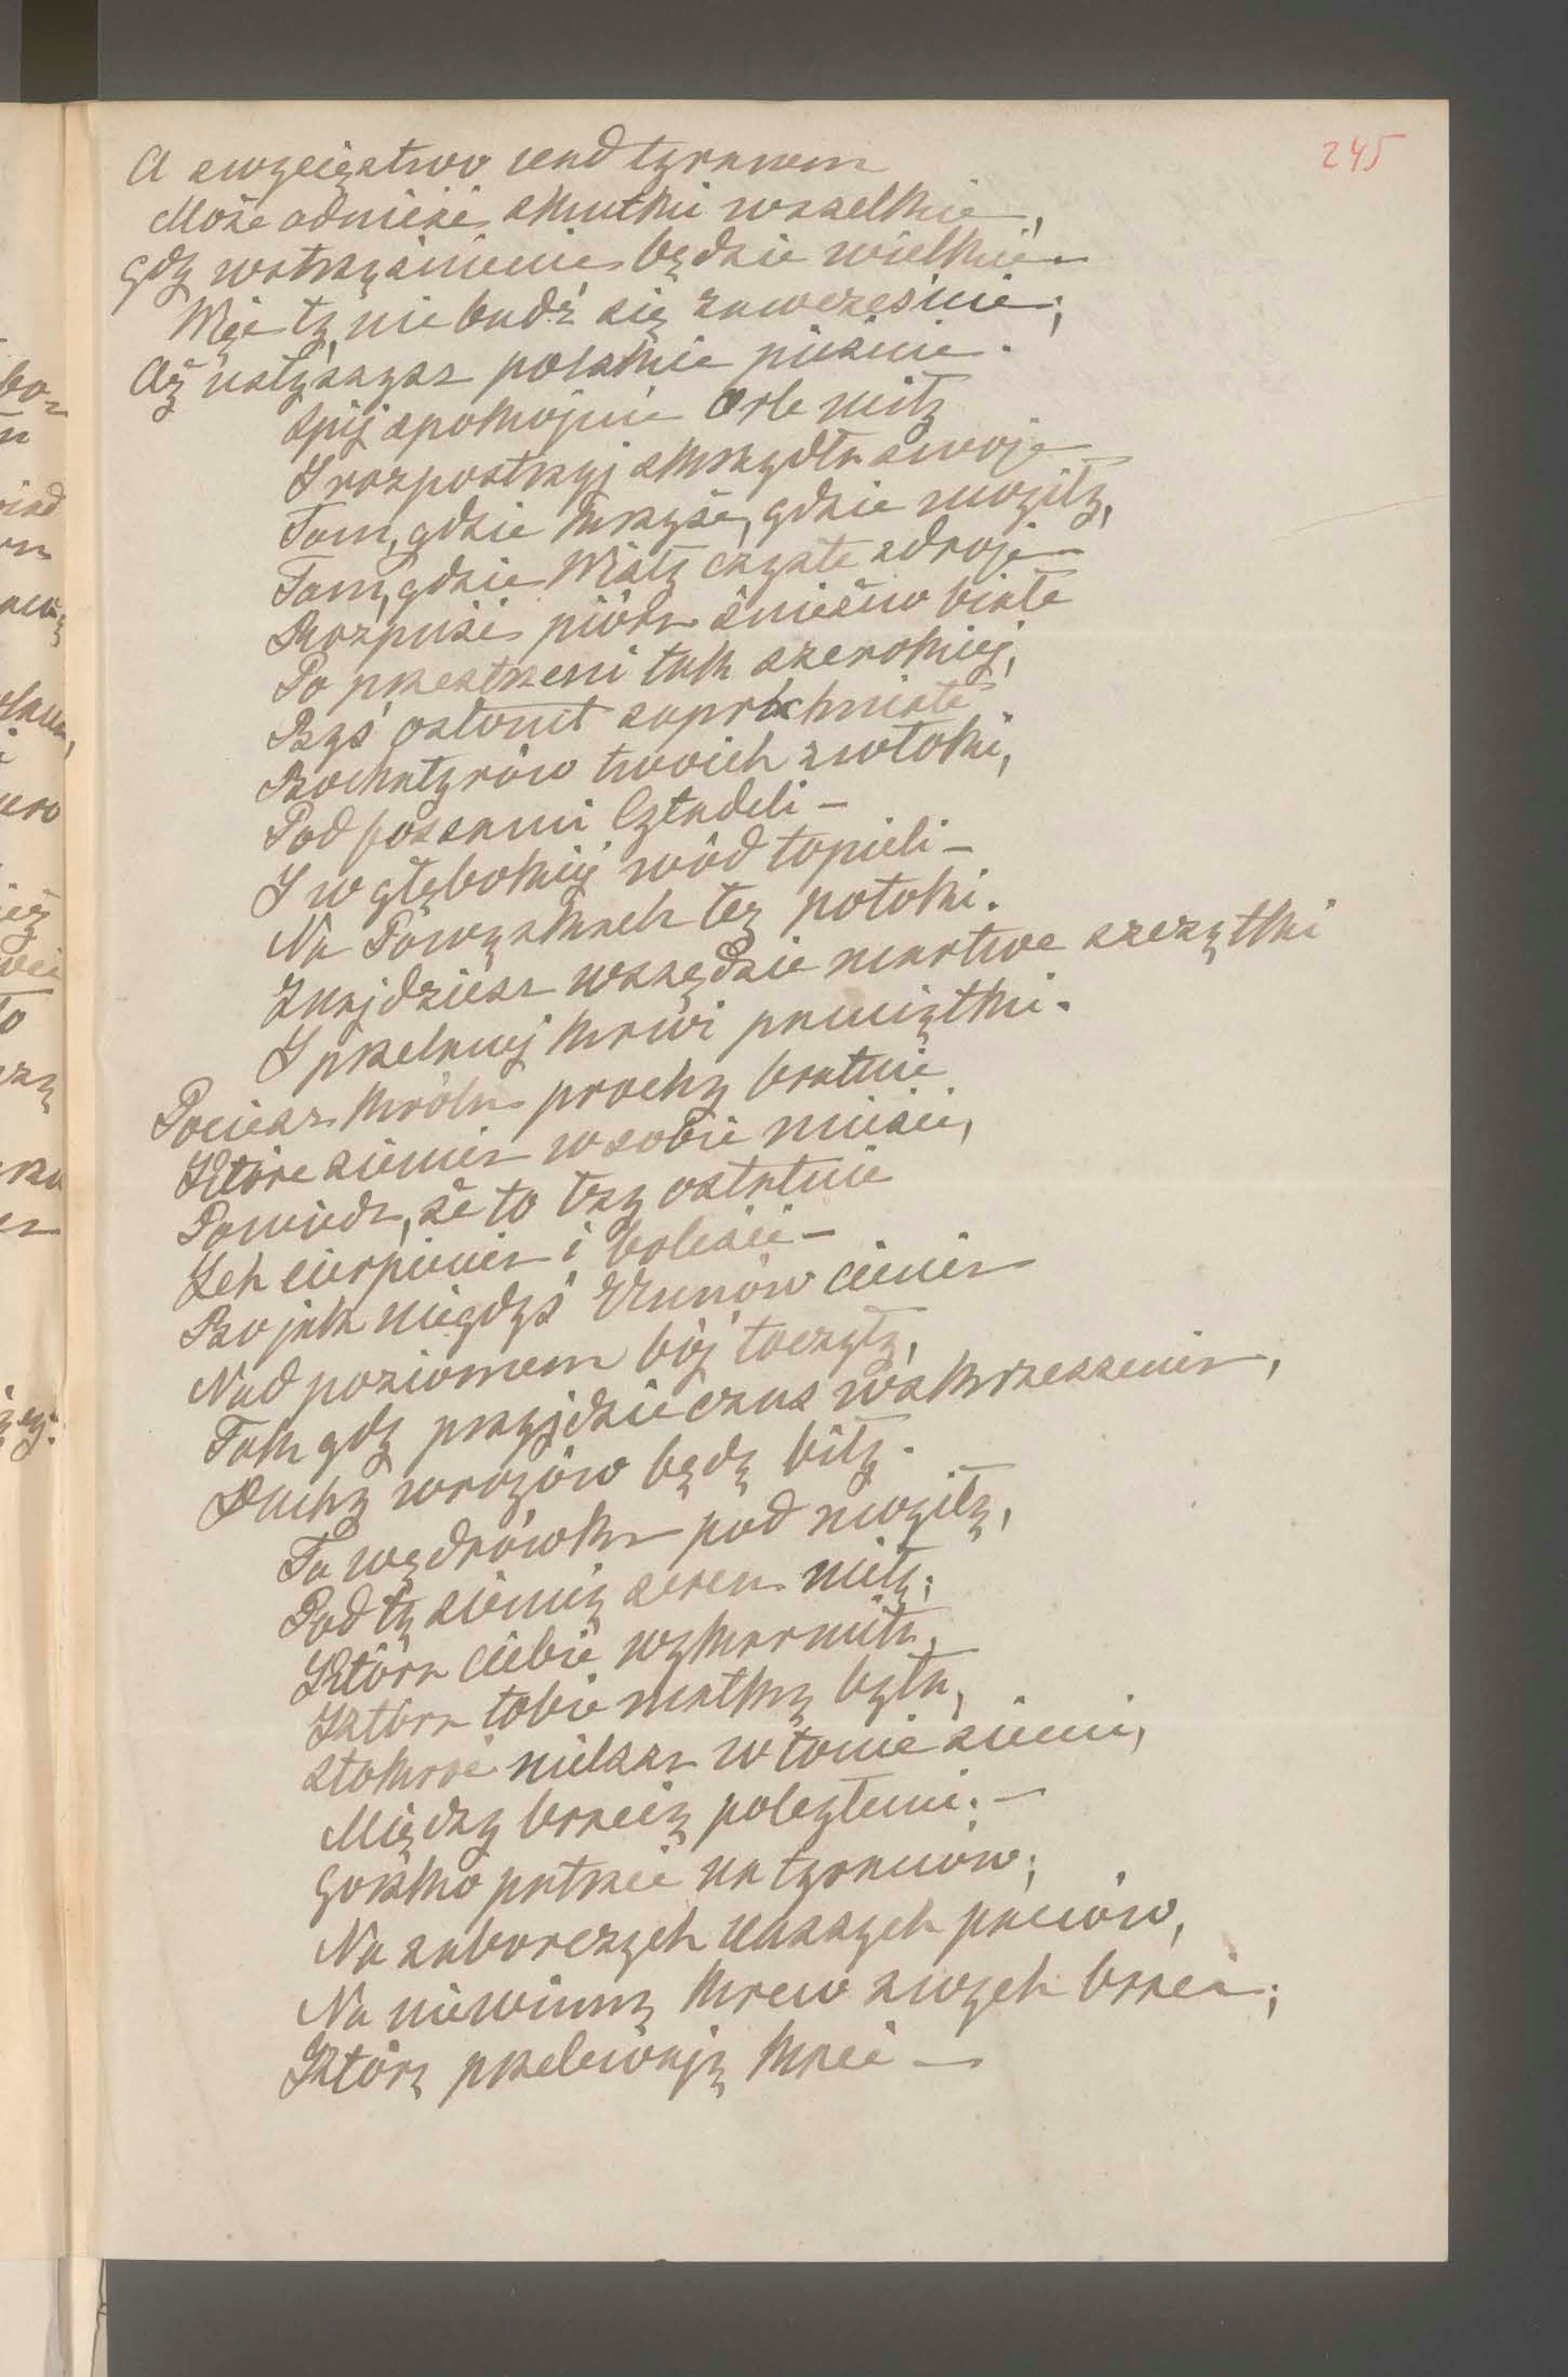 245
A zwycięstwo nad tyranem
Może odnieść skutki wszelkie,
gdy wstrząśnienie będzie wielkie
Więc ty nie budź się zawcześnie;
Aż usłyszysz polskie pieśnie.
Śpij spokojnie Orle miły
I rozpostrzyj skrzydła swoje
Tam, gdzie krzyże, gdzie mogiły,
Tam, gdzie Wisły czyste zdroje
Rozpuść pióra śnieżno białe
Po przestrzeni tak szerokiéj,
Byś osłonił spruchniałe
Bochatyrów twoich zwłoki,
Pod fossami Cytadeli –
I w głębokiéj wód topieli –
Na Powązkach łez potoki.
Znajdziesz wszędzie martwe szczątki
I przelanej krwi pamiątki.
Pociesz króla prochy bratnie
Które ziemia w sobie mieści,
Powiedz, że to łzy ostatnie
Ich cierpienia i boleści –
Bo jak niegdyś Hunów cienie
Nad poziomem bój toczyły,
Tak gdy przyjdzie czas wskrzeszenia,
Duchy wrogów będą biły.
Ta wędrówka pod mogiłą,
Pod tą ziemią serca miłą;
Która ciebie wykarmiła,
Która tobie matką była,
Stokroć milsza w łonie ziemi,
Między bracią poległemi. –
Gorzko patrzeć na tyranów;
Na zaborczych naszych panów,
Na niewinną krew swych braci;
Którą przelewają kaci –